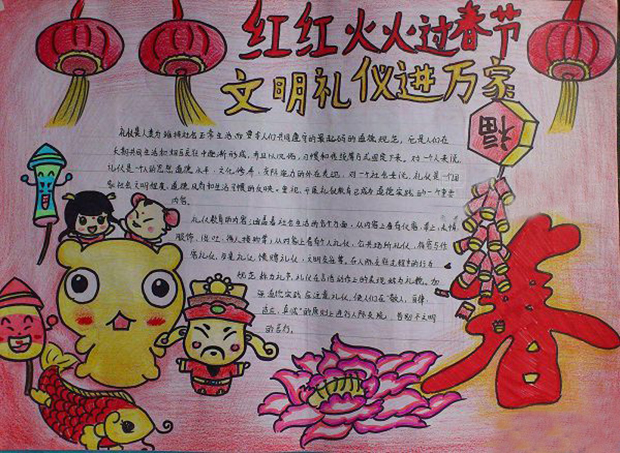 红红火火过春节
文明礼仪进万家
福
礼仪是人类为维持社会正常生活而要求人们共同遵守的最起码的道德规范，它是人们在
长期共同生活和相互交往中逐渐形成，并且以风俗、习惯和传统等方式固定下来。对一个人来说，
礼仪是一个人的思想道德水平、文化修养、交际能力的外在表现，对一个社会来说，礼仪是一个国
家社会文明程度、道德风尚和生活习惯的反映。重视、开展礼仪教育已成为道德实践的一个重要
内容。
礼仪教育的内容涵盖着社会生活的各个方面，从内容上看有仪容、举止、表情、
服饰、谈吐、待人接物等；从对象上看有个人礼仪、公共场所礼仪、待客与作
客礼仪、餐桌礼仪、馈赠礼仪、文明交往等。在人际交往过程中的行为
规范称为礼节，礼仪在言语动作上的表现称为礼貌。加
强道德实践应注意礼仪，使人们在"敬人、自律、
适度、真诚"的原则上进行人际交往，告别不文明
的言行。
春